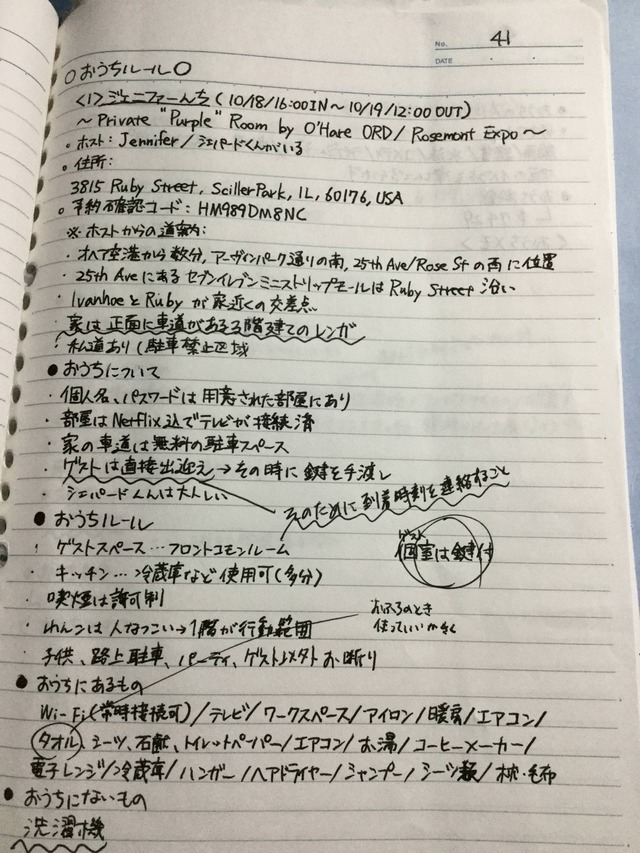 No. 41
DATE
○おうちルール○
<1>ジェニファーんち(10/18/16:00IN〜10/19/12:00OUT)
〜Private "Purple" Room by O'Hare ORD/Rosemont Expo〜
・ホスト:Jennifer/シェパードくんがいる
○住所:
3815 Ruby Street, ScillerPark, IL, 60176, USA
○予約確認コード:HM989DM8NC
※ホストからの道案内:
・オヘア空港から数分,アーヴィンパーク通りの南,25th Ave/Rose Stの西に位置
・25th AveにあるセブンイレブンミニストリップモールはRuby Street沿い
・IvanhoeとRubyが家近くの交差点
・家は正面に車道がある3階建てのレンガ
・私道あり(駐車禁止区域
●おうちについて
・個人名、パスワードは用意された部屋にあり
・部屋はNetflix込でテレビが接続済
・家の車道は無料の駐車スペース
・ゲストは直接出迎え→その時に鍵を手渡し
・シェパードくんは大人しい
そのために到着時刻を連絡すること
●おうちルール
・ゲストスペース…フロントコモンルーム
ゲスト
個室は鍵付
・キッチン…冷蔵庫など使用可(多分)
・喫煙は許可制
おふろのとき
使っていいかきく
・わんこは人なつこい→1階が行動範囲
・子供、路上駐車、パーティ、ゲスト以外お断り
●おうちにあるもの
Wi-Fi(常時接続可)/テレビ/ワークスペース/アイロン/暖房/エアコン/
タオル、シーツ、石鹸、トイレットペーパー/エアコン/お湯/コーヒーメーカー/
電子レンジ/冷蔵庫/ハンガー/ヘアドライヤー/シャンプー/シーツ類/枕・毛布
●おうちにないもの
洗濯機